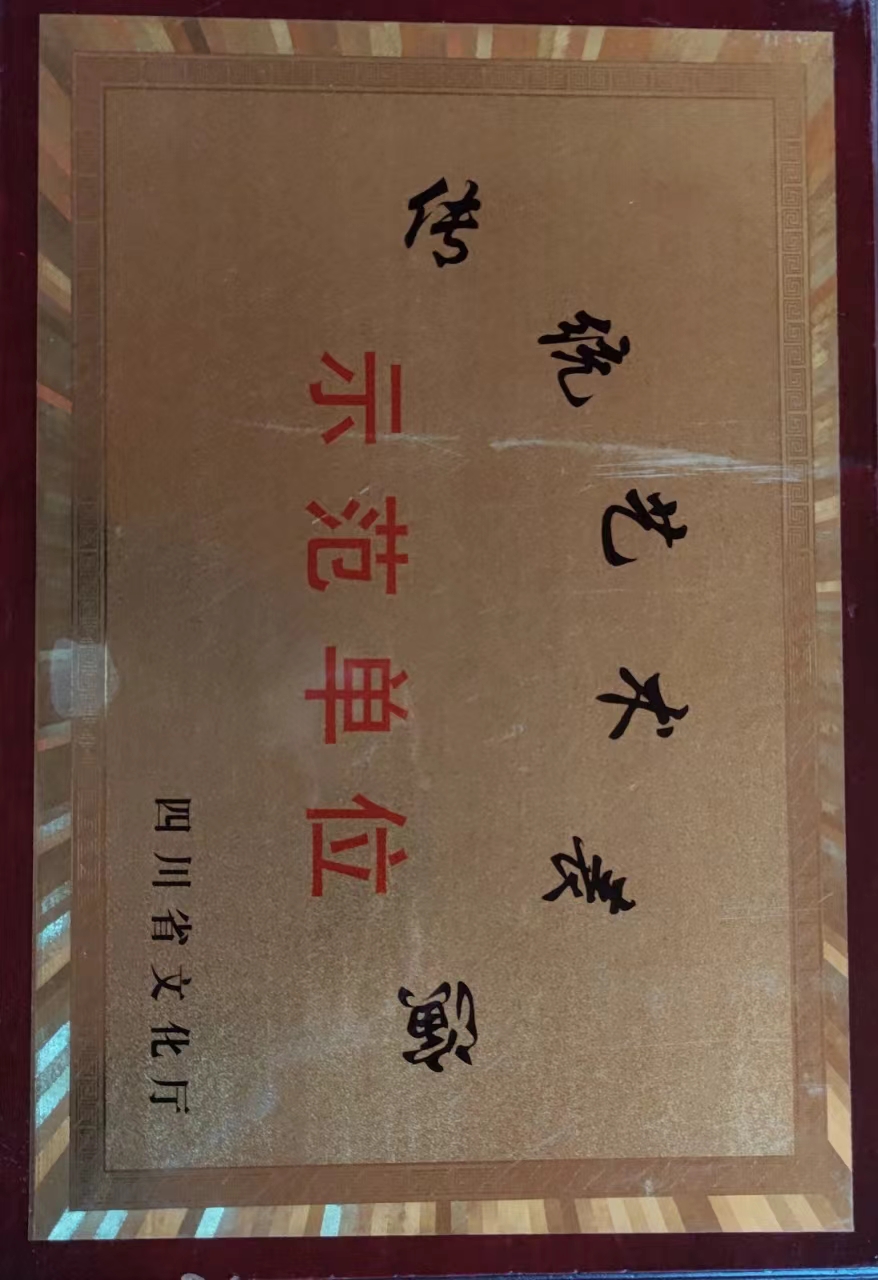 传统艺术表演
示范单位
四川省文化厅